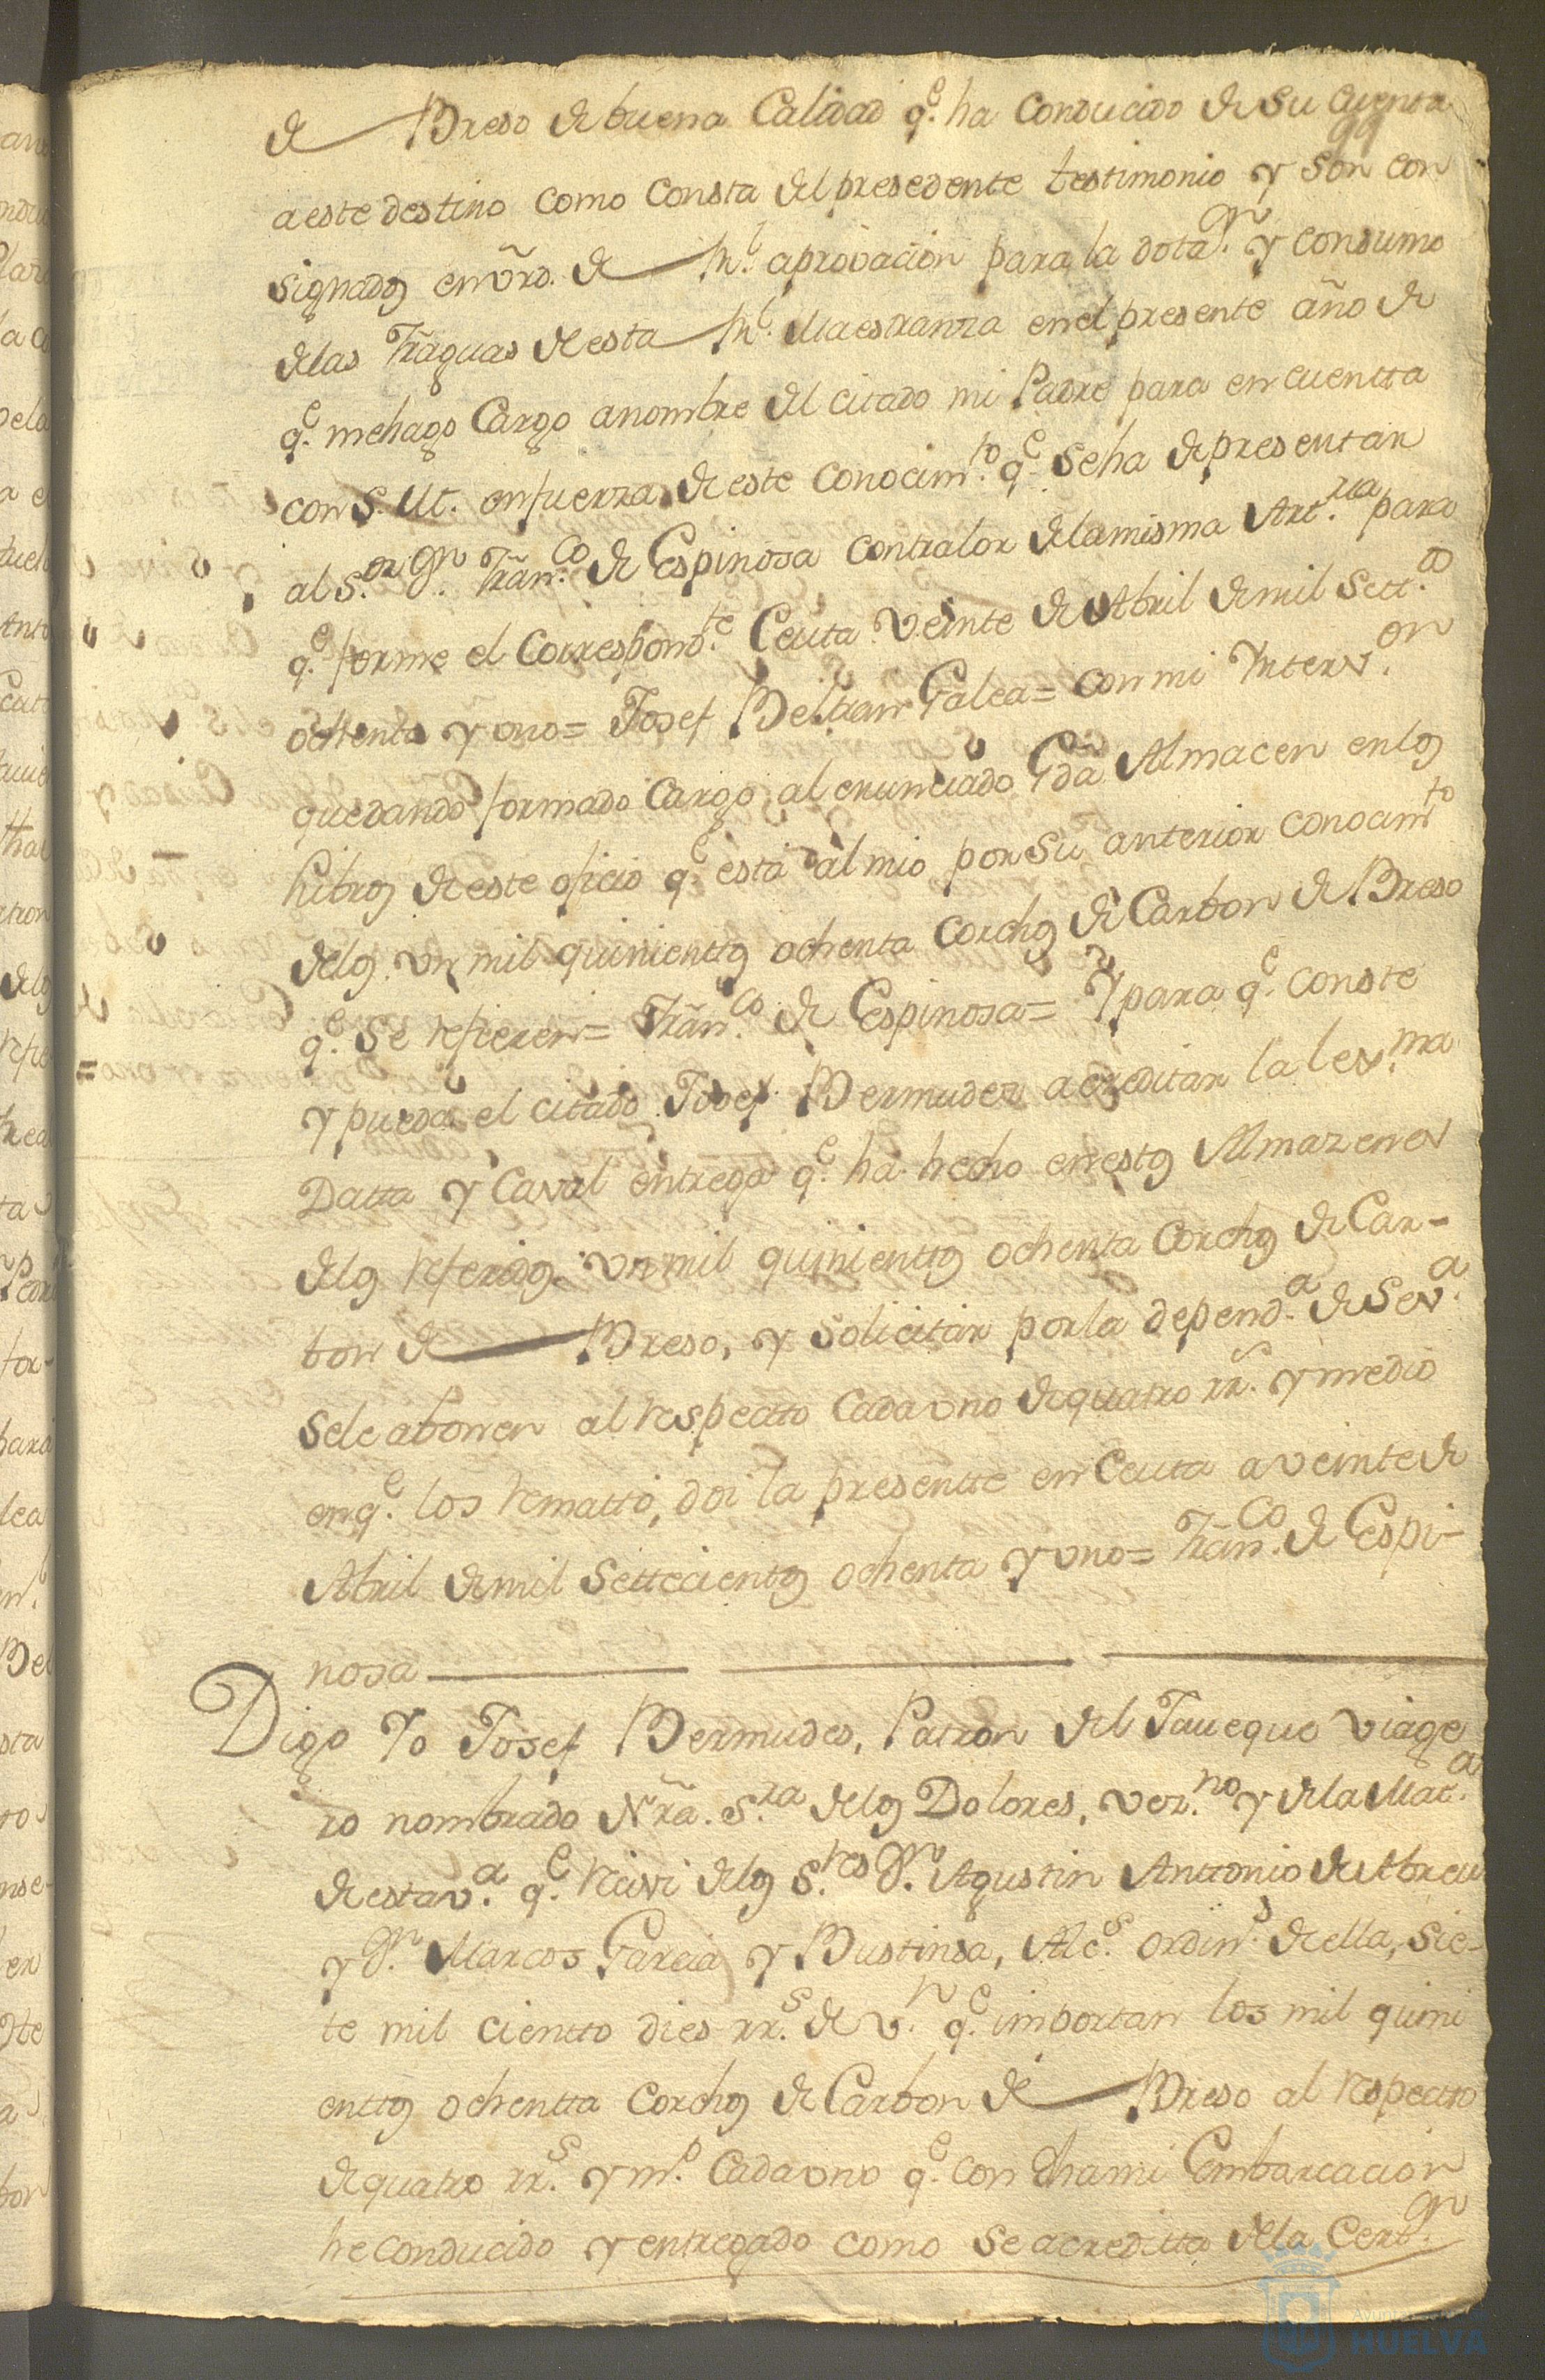 de Breso de buena Calidad q.e ha Conducido de Su Cuenta
a este destino como Consta del presedente testimonio y Son con
signados en vrd. de Rl. aprovacion para la dotaon. y consumo
de las Fraguas de esta Rl. Maestranza en el presente año de
q.e me hago Cargo a nombre del citado mi Padre para en cuentta
con S. M. en fuerza de este Conocim.to q.e Se ha de presentar
al S.or Dn. Fran.co de Espinosa Contralor de la misma Art.ria para
q.e forme el Correspond.te Ceuta Veinte de Abril de mil Sett.os
ochenta y uno= Josef Beltran Galea= Con mi Interv.on
quedando formado Cargo al enunciado Gda Almacen en los
Libros de este oficio q.e está al mio por Su anterior conocim.to
de los un mil quinienttos ochenta Corchos de Carbon de Breso
q.e Se refieren= Fran.co de Espinosa= Y para q.e Conste
y pueda el citado Josef Bermudez acreditar la lex.ma
Datta y Caval entrega q.e ha hecho en estos Almazenes
de los referidos un mil quinienttos ochenta Corchos de Car-
bon de Breso, y Solicitar por la depend.a de Sev.a
Sele abonen al respectto Cada uno de quatro rr.s y medio
en q.e los remattó, doi la presentte en Ceuta a veinte de
Abril de mil Settecientos ochenta y uno= Fran.co de Espi-
nosa
Digo Yo Josef Bermudes, Patron del Javeque Viage
ro nombrado Nra. S.ra de los Dolores, vez.no y de la Mat.a
de esta v.a q.e Recivi de los S.res Dn. Agustin Anttonio de Abreu
y Dn. Marcos Garcia y Bustinsa, Alc.s ordin.s de ella, Sie-
te mil cientto dies rr.s de v.n q.e importan los mil quini
enttos ochentta Corchos de Carbon de Breso al respectto
de quatro rr.s y m.o Cada uno q.e con dha mi Embarcacion
he conducido y entregado como Se acreditta de la Certon.
HUELVA